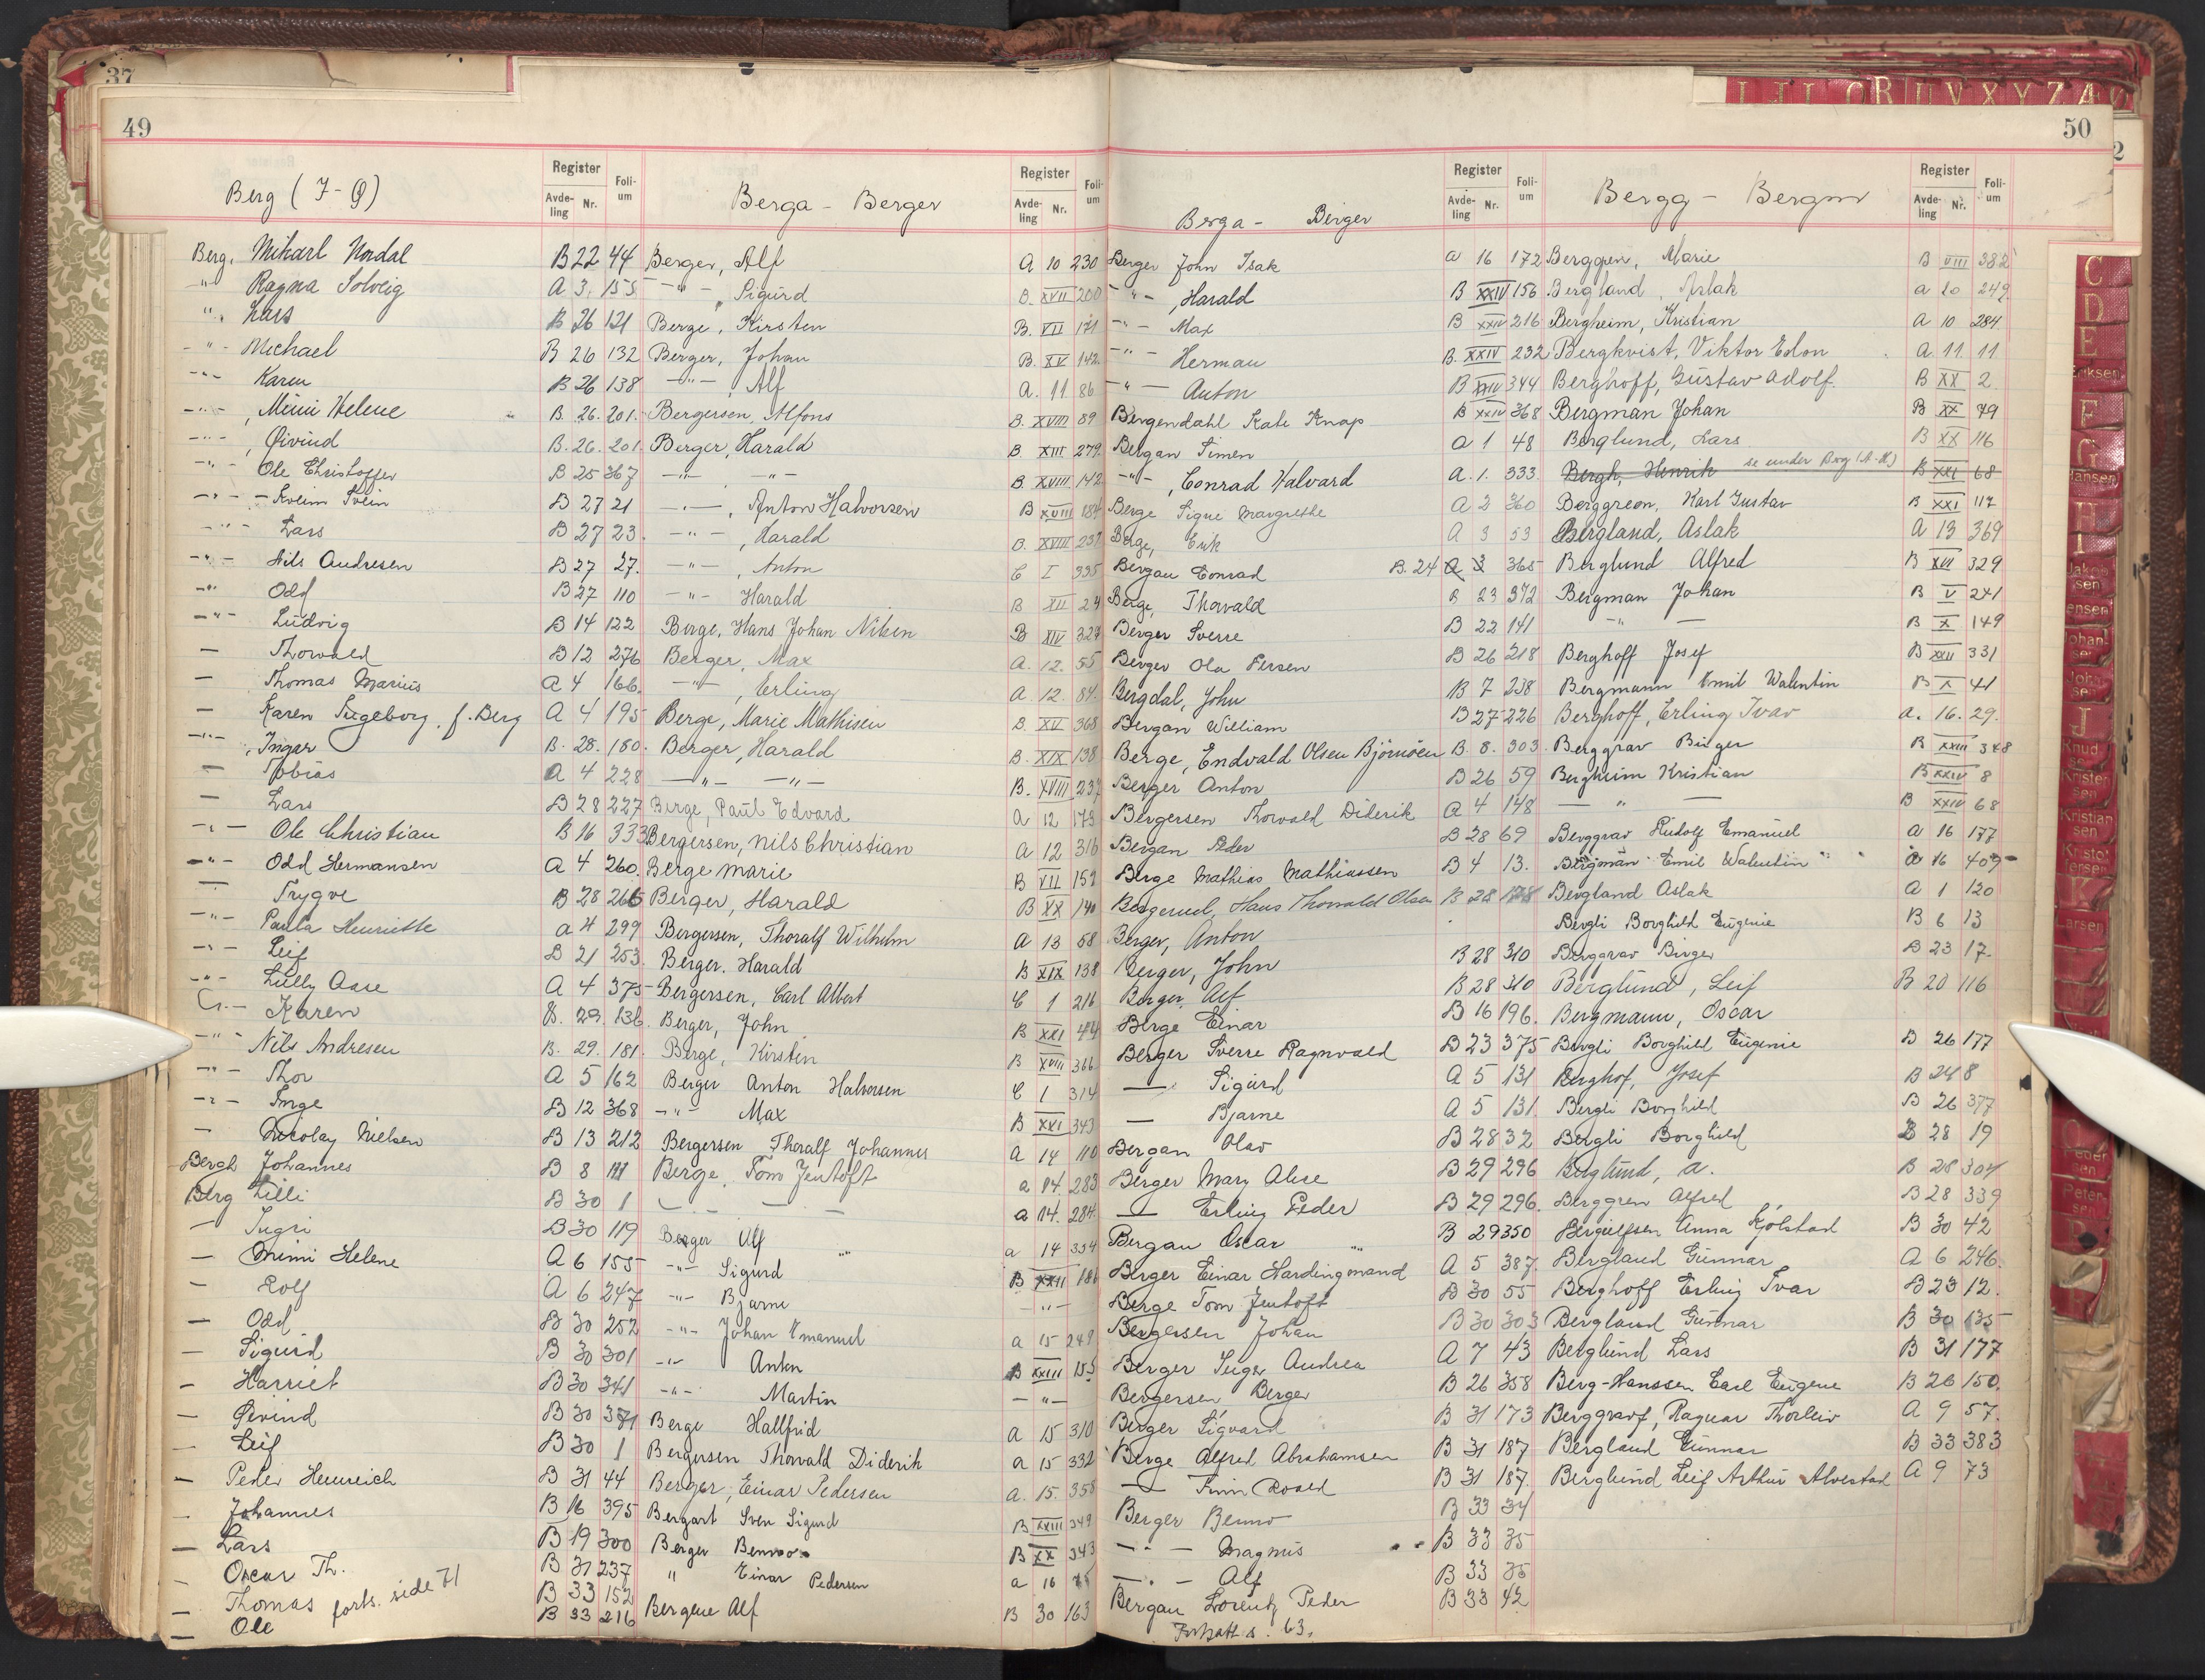 37
49
50
2
I J L O R U V X Y Z Æ
Berg (I-Q)
Register
Foli-um
Avde-ling Nr.
Berg, Mikael Nordal B 22 44
-"- Ragna Solveig A 3 155
-"- Lars B 26 121
-"- Michael B 26 132
-"- Karen B 26 138
-"- , Mimi Helene B. 26. 201.
-"- , Øivind B. 26. 201.
-"- Ole Christoffer B 25 367
-"- Svein B 27 21
-"- Lars B 27 23.
-"- Nils Andresen B 27 27.
-"- Odd B 27 110
-"- Ludvig B 14 122
— Thorvald B 12 276
— Thomas Marius A 4 166.
— Karen Ingeborg, f. Berg A 4 195
-"- , Ingar B. 28. 180.
— Tobias A 4 228
— Lars B 28 227
-"- Ole Christian B 16 333
-"- Odd Hermansen A 4 260
— Trygve B 28 266
-"- Paula Henriette a 4 299
-"- Leif B 21 253.
-"- Lully Aase A 4 375
-"- Karen B. 29. 136.
-"- Nils Andresen B. 29. 181.
-"- Thor A 5 162
-"- Inge B 12 368
— Nicolay Nielsen B 13 212
Bergh Johannes B 8 111
Berg Lilli B 30 1
— Ingri B 30 119
— Mimi Helene A 6 155
— Rolf A 6 247
— Odd B 30 252
— Sigurd B 30 301
— Harriet B 30 341
— Øivind B 30 371
— Leif B 30 1
— Peder Heinreich B 31 44
— Johannes B 16 395
— Lars B 19 300
— Oscar Th. B 31 237
— Thomas B 33 152
— Ole B 33 216
forts. side 71
Berga - Berger
Register
Foli-um
Avde-ling Nr.
Berger, Alf A 10 230
-"- , Sigurd B. XVII 200
Berge, Kirsten B. VII 171
Berger, Johan B. XV 142
-"- , Alf A. 11 86
Bergersen, Alfons B. XVIII 89
Berger, Harald B XIII 279
-"- -"- B XVIII 142
-"- , Anton Halvorsen B XVIII 184
-"- , Harald B. XVIII 237
-"- , Anton C I 335
-"- Harald B XII 24
Berge, Hans Johan Nilsen B XIV 329
Berger, Max A. 12. 55
-"- , Erling A. 12. 84.
Berge, Marie Mathisen B. XV 368
Berger, Harald B. XIX 138
-"- -"- B. XVIII 237
Berge, Paul Edvard A 12 173
Bergersen, Nils Christian A 12 316
Berge Marie B VII 159
Berger, Harald B XX 140
Bergersen, Thoralf Wilhelm A 13 58
Berger. Harald B XIX 138
Bergersen, Carl Albert C 1 216
Berger, John B XXI 44
Berge, Kirstin B XVIII 366
Berger Anton Halvorsen C 1 314
-"- Max B XXI 343
Bergersen Thoralf Johannes A 14 110
Berge, Tom Jentoft a 14. 283
— — — a 14. 284.
Berger Ulf a 14 334
-"- Sigurd B XXII 186
-"- Bjarne -"-
-"- Johan Emanuel a 15 249
-"- Anton B XXIII 155
-"- Martin -"-
Berge Hallfrid a 15 310
Bergersen Thorvald Diderik a 15 332
Berger, Einar Pedersen a. 15. 358
Bergart Sven Sigurd B XXIII 349
Berger Benno B XX 343
" Einar Pedersen a 16 75
Bergene Alf B 30 163
Berga - Berger
Register
Foli-um
Avde-ling Nr.
Berger John Isak a 16 172
-"- , Harald B XXIV 156
-"- Max B XXIV 216
-"- Herman B. XXIV 232
-"- Anton B XXIV 344
Bergendahl Kate Knap B XXIV 368
Bergan Simen a 1 48
-"- , Conrad Halvard A. 1. 333.
Berge Signe Margrethe A 2 360
Berge, Erik A 3 53
Bergan Conrad B. 24 a 3 365
Berge, Thorvald B 23 372
Berger Sverre B 22 141
Berger Ola Persen B 26 218
Bergdal, John B 7 238
Bergan William B 27 226
Berge, Endvald Olsen Bjørnøen B. 8. 303.
Berger Anton B 26 59
Bergersen Thorvald Diderik A 4 148
Bergan Peder B 28 69
Berge Mathias Mathiassen B 4 13.
Bergerud, Hans Thorvald Olsen B 28 178
Berger, Anton B 28 310
Berger, John B 28 310
Berger, Alf B 16 196.
Berge Einar B 23 375
Berger Sverre Ragnvald A 5 131
— Sigurd A 5 131
— Bjarne B 28 32
Bergan Olav B 29 296
Berger Mary Alice B 29 296.
— Erling Peder B 29 350
Bergan Oscar A 5 387
Berger Einar Hardingmand B 30 55
Berge Tom Jentoft B 30 303
Bergersen Johan A 7 43
Berger Inger Andrea B 26 358
Bergersen Berger B 31 173
Berger Sigvard B 31 187
Berge Alfred Abrahamsen B 31 187.
— Finn Roald B 33 34
Berger Benno B 33 35
-"- Magnus B 33 35
-"- Alf B 33 42
Bergan Lorentz Peder
Fortsatt s. 63.
Bergg - Bergm
Register
Foli-um
Avde-ling Nr.
Berggren, Marie B VIII 382
Bergland, Aslak a 10 249
Bergheim, Kristian A 10 284
Bergkvist, Viktor Edon A. 11 11
Berghoff, Gustav Adolf. B XX 2
Bergman Johan B XX 79
Berglund, Lars B XX 116
Bergh, Henrik se under Berg (A-H) B XXI 68
Berggreen, Karl Gustav B XXI 117
Bergland, Aslak A 13 369
Berglund Alfred B XVII 329
Bergman Johan B V 241
— " — B X 149
Berghoff Josef B XXIII 331
Bergmann Emil Walentin B X 41
Berghoff, Erling Ivar a. 16. 29.
Berggrav Birger B XXIII 348
Bergheim Kristian B XXIV 8
— " — B XXIV 68
Berggrav Rudolf Emanuel a 16 177
Bergman Emil Walentin a 16 409
Bergland Aslak A 1 120
Bergli Borghild Eugenie B 6 13
Berggrav Birger B 23 17.
Berglund, Leif B 20 116
Bergmann, Oscar
Bergli Borghild Eugenie B 26 177
Berghof, Josef B 24 8
Bergli Borghild B 26 377
Bergli Borghild B 28 19
Berglund, A. B 28 304
Berggren Alfred B 28 339
Bergulfsen Anna Kjølstad B 30 42
Bergland Gunnar A 6 246.
Berghoff Erling Ivar B 23 12.
Bergland Gunnar B 30 135
Berglund Lars B 31 177
Berg-Hanssen Carl Eugene B 26 150.
Berggrav, Ragnar Thorleiv A 9 57.
Bergland Gunnar B 33 383
Berglund Leif Arthur Alvestad A 9 73
C
D
E
Eriksen
F
G
Hansen
H
I
Jakobsen
Jensen
Johansen
J
Knudsen
Kristensen
Kristiansen
Kristoffersen
K
Larsen
O
Pedersen
Petersen